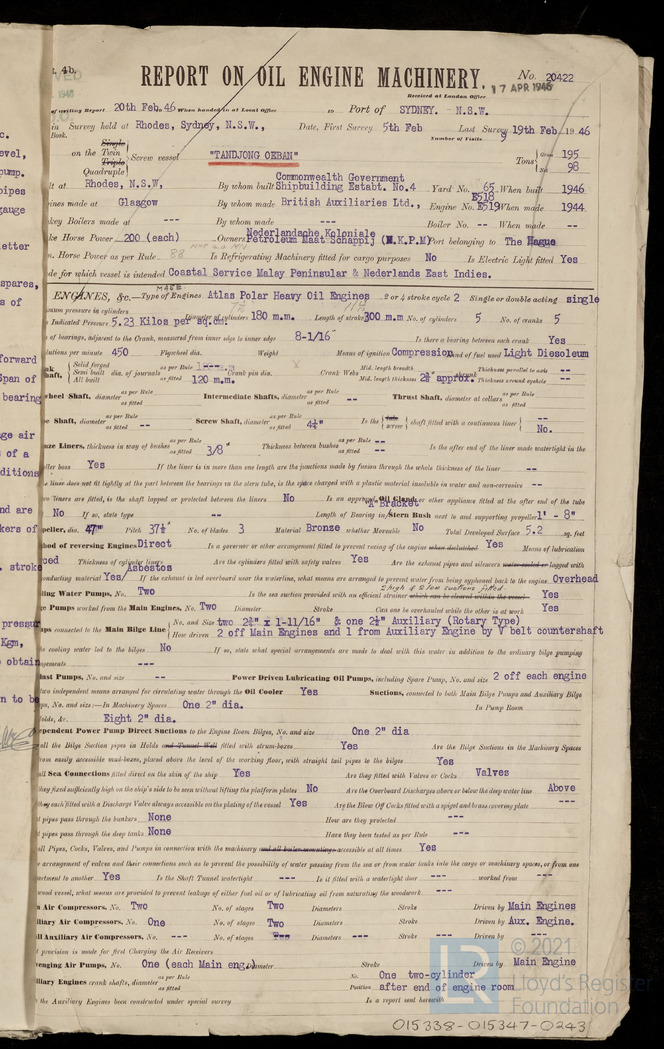 t. 4b.
REPORT ON OIL ENGINE MACHINERY.
No. 20422
17 APR 1946
Received at London Office
of writing Report 20th Feb.46 When handed in at Local Office to Port of SYDNEY. N.S.W.
in Survey held at Rhodes, Sydney, N.S.W., Date, First Survey 5th Feb Last Survey 19th Feb. 1946
Book. Number of Visits 9
on the Single Twin Triple Quadruple Screw vessel "TANDJONG OEBAN" Tons Gross 195 Net 98
lt at Rhodes, N.S.W, By whom built Commonwealth Government Shipbuilding Estabt. No.4 Yard No. 65 When built 1946
ines made at Glasgow By whom made British Auxiliaries Ltd., Engine No. E518 E519 When made 1944
key Boilers made at --- By whom made --- Boiler No. -- When made --
ke Horse Power 200 (each) Owners Nederlandsche Koloniale Petroleum Maat Schappij (N.K.P.M) Port belonging to The Hague
m. Horse Power as per Rule 88 Is Refrigerating Machinery fitted for cargo purposes No Is Electric Light fitted Yes
de for which vessel is intended Coastal Service Malay Peninsular & Nederlands East Indies.
ENGINES, &c.—Type of Engines Atlas Polar Heavy Oil Engines 2 or 4 stroke cycle 2 Single or double acting single
imum pressure in cylinders Diameter of cylinders 180 m.m. Length of stroke 300 m.m No. of cylinders 5 No. of cranks 5
Indicated Pressure 5.23 Kilos per sq.cm.
of bearings, adjacent to the Crank, measured from inner edge to inner edge 8-1/16" Is there a bearing between each crank Yes
lutions per minute 450 Flywheel dia. Weight Means of ignition Compression Kind of fuel used Light Diesoleum
nk haft, Solid forged Semi built All built dia. of journals as per Rule as fitted 120 m.m. Crank pin dia. Crank Webs Mid. length breadth Mid. length thickness 2⅜" approx. Thickness parallel to axis -- Thickness around eyehole --
wheel Shaft, diameter as per Rule as fitted Intermediate Shafts, diameter as per Rule as fitted -- Thrust Shaft, diameter at collars as per Rule as fitted --
e Shaft, diameter as per Rule as fitted -- -- Screw Shaft, diameter as per Rule as fitted 4¼" Is the tube screw shaft fitted with a continuous liner -- No.
nze Liners, thickness in way of bushes as per Rule as fitted 3/8" Thickness between bushes as per Rule as fitted -- -- Is the after end of the liner made watertight in the
ller boss Yes If the liner is in more than one length are the junctions made by fusion through the whole thickness of the liner --
e liner does not fit tightly at the part between the bearings in the stern tube, is the space charged with a plastic material insoluble in water and non-corrosive --
wo liners are fitted, is the shaft lapped or protected between the liners No Is an approved Oil Gland or other appliance fitted at the after end of the tube
No If so, state type -- Length of Bearing in "A" Bracket Stern Bush next to and supporting propeller 1' - 8"
peller, dia. 47" Pitch 37½" No. of blades 3 Material Bronze whether Moveable No Total Developed Surface 5.2 sq. feet
hod of reversing Engines Direct Is a governor or other arrangement fitted to prevent racing of the engine when declutched Yes Means of lubrication
ced Thickness of cylinder liners Are the cylinders fitted with safety valves Yes Are the exhaust pipes and silencers water cooled or lagged with
onducting material Asbestos Yes If the exhaust is led overboard near the waterline, what means are arranged to prevent water being syphoned back to the engine Overhead
ling Water Pumps, No. Two Is the sea suction provided with an efficient strainer which can be cleared within the vessel 2 high & 2 low suctions fitted Yes
ge Pumps worked from the Main Engines, No. Two Diameter Stroke Can one be overhauled while the other is at work Yes
mps connected to the Main Bilge Line No. and Size two 2¾" x 1-11/16" & one 2½" Auxiliary (Rotary Type)
How driven 2 off Main Engines and 1 from Auxiliary Engine by V belt countershaft
e cooling water led to the bilges No If so, state what special arrangements are made to deal with this water in addition to the ordinary bilge pumping
ngements ---
last Pumps, No. and size -- Power Driven Lubricating Oil Pumps, including Spare Pump, No. and size 2 off each engine
two independent means arranged for circulating water through the Oil Cooler Yes Suctions, connected to both Main Bilge Pumps and Auxiliary Bilge
ps, No. and size:—In Machinery Spaces One 2" dia. In Pump Room
olds, &c. Eight 2" dia.
ependent Power Pump Direct Suctions to the Engine Room Bilges, No. and size One 2" dia
all the Bilge Suction pipes in Holds and Tunnel Well fitted with strum-boxes Yes Are the Bilge Suctions in the Machinery Spaces
rom easily accessible mud-boxes, placed above the level of the working floor, with straight tail pipes to the bilges Yes
ll Sea Connections fitted direct on the skin of the ship Yes Are they fitted with Valves or Cocks Valves
they fixed sufficiently high on the ship's side to be seen without lifting the platform plates No Are the Overboard Discharges above or below the deep water line Above
they each fitted with a Discharge Valve always accessible on the plating of the vessel Yes Are the Blow Off Cocks fitted with a spigot and brass covering plate ---
t pipes pass through the bunkers None How are they protected ---
t pipes pass through the deep tanks None Have they been tested as per Rule ---
ll Pipes, Cocks, Valves, and Pumps in connection with the machinery and all boiler mountings accessible at all times Yes
e arrangement of valves and their connections such as to prevent the possibility of water passing from the sea or from water tanks into the cargo or machinery spaces, or from one
artment to another Yes Is the Shaft Tunnel watertight --- Is it fitted with a watertight door --- worked from ---
wood vessel, what means are provided to prevent leakage of either fuel oil or of lubricating oil from saturating the woodwork ---
n Air Compressors, No. Two No. of stages Two Diameters Stroke Driven by Main Engines
iliary Air Compressors, No. One No. of stages Two Diameters Stroke Driven by Aux. Engine.
ll Auxiliary Air Compressors, No. --- No. of stages --- Diameters --- Stroke --- Driven by ---
t provision is made for first Charging the Air Receivers
venging Air Pumps, No. One (each Main eng.) Diameter Stroke Driven by Main Engine
iliary Engines crank shafts, diameter as per Rule as fitted No. One two-cylinder Position after end of engine room
the Auxiliary Engines been constructed under special survey Is a report sent herewith
© 2021
LR
Lloyd's Register
Foundation
015338-015347-0243